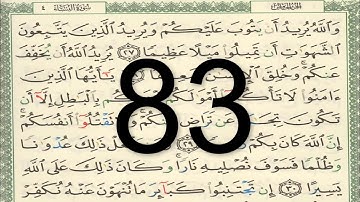 سُورَةُ النِّسَاءِ ٤
وَٱللَّهُ يُرِيدُ أَن يَتُوبَ عَلَيْكُمْ وَيُرِيدُ ٱلَّذِينَ يَتَّبِعُونَ
ٱلشَّهَوَٰتِ أَن تَمِيلُوا۟ مَيْلًا عَظِيمًا ٢٧ يُرِيدُ ٱللَّهُ أَن يُخَفِّفَ
عَنكُمْ ۚ وَخُلِقَ ٱلْإِنسَٰنُ يَٰٓأَيُّهَا ٱلَّذِينَ
83
ءَامَنُوا۟ لَا تَأْكُلُوٓا۟ أَمْوَٰلَكُم بِٱلْبَٰطِلِ إِلَّآ أَن
تَكُونَ تِجَٰرَةً عَن تَرَاضٍ تَقْتُلُوٓا۟ أَنفُسَكُمْ ۚ
إِنَّ ٱللَّهَ كَانَ بِكُمْ رَحِيمًا ٢٩ ذَٰلِكَ عُدْوَٰنًا
وَظُلْمًا فَسَوْفَ نُصْلِيهِ نَارًا ۚ وَكَانَ ذَٰلِكَ عَلَى ٱللَّهِ
يَسِيرًا ٣٠ إِن تَجْتَنِبُوا۟ كَبَآئِرَ مَا تُنْهَوْنَ عَنْهُ نُكَفِّرْ